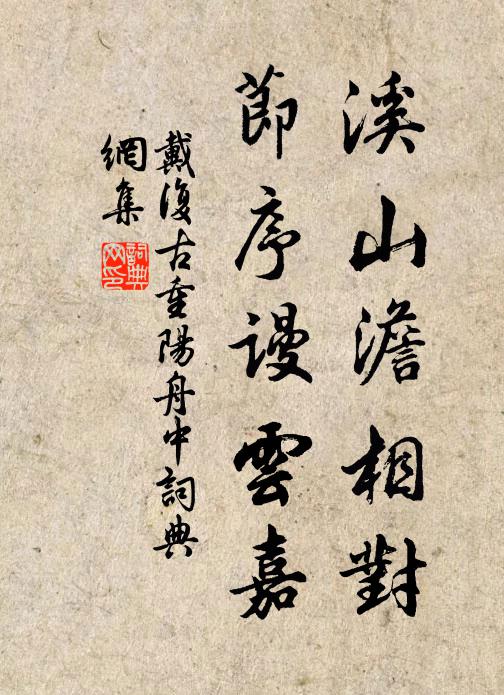 溪山澹相對
節序謾雲嘉
戴復古重陽舟中詞典
網集
詞典
网印